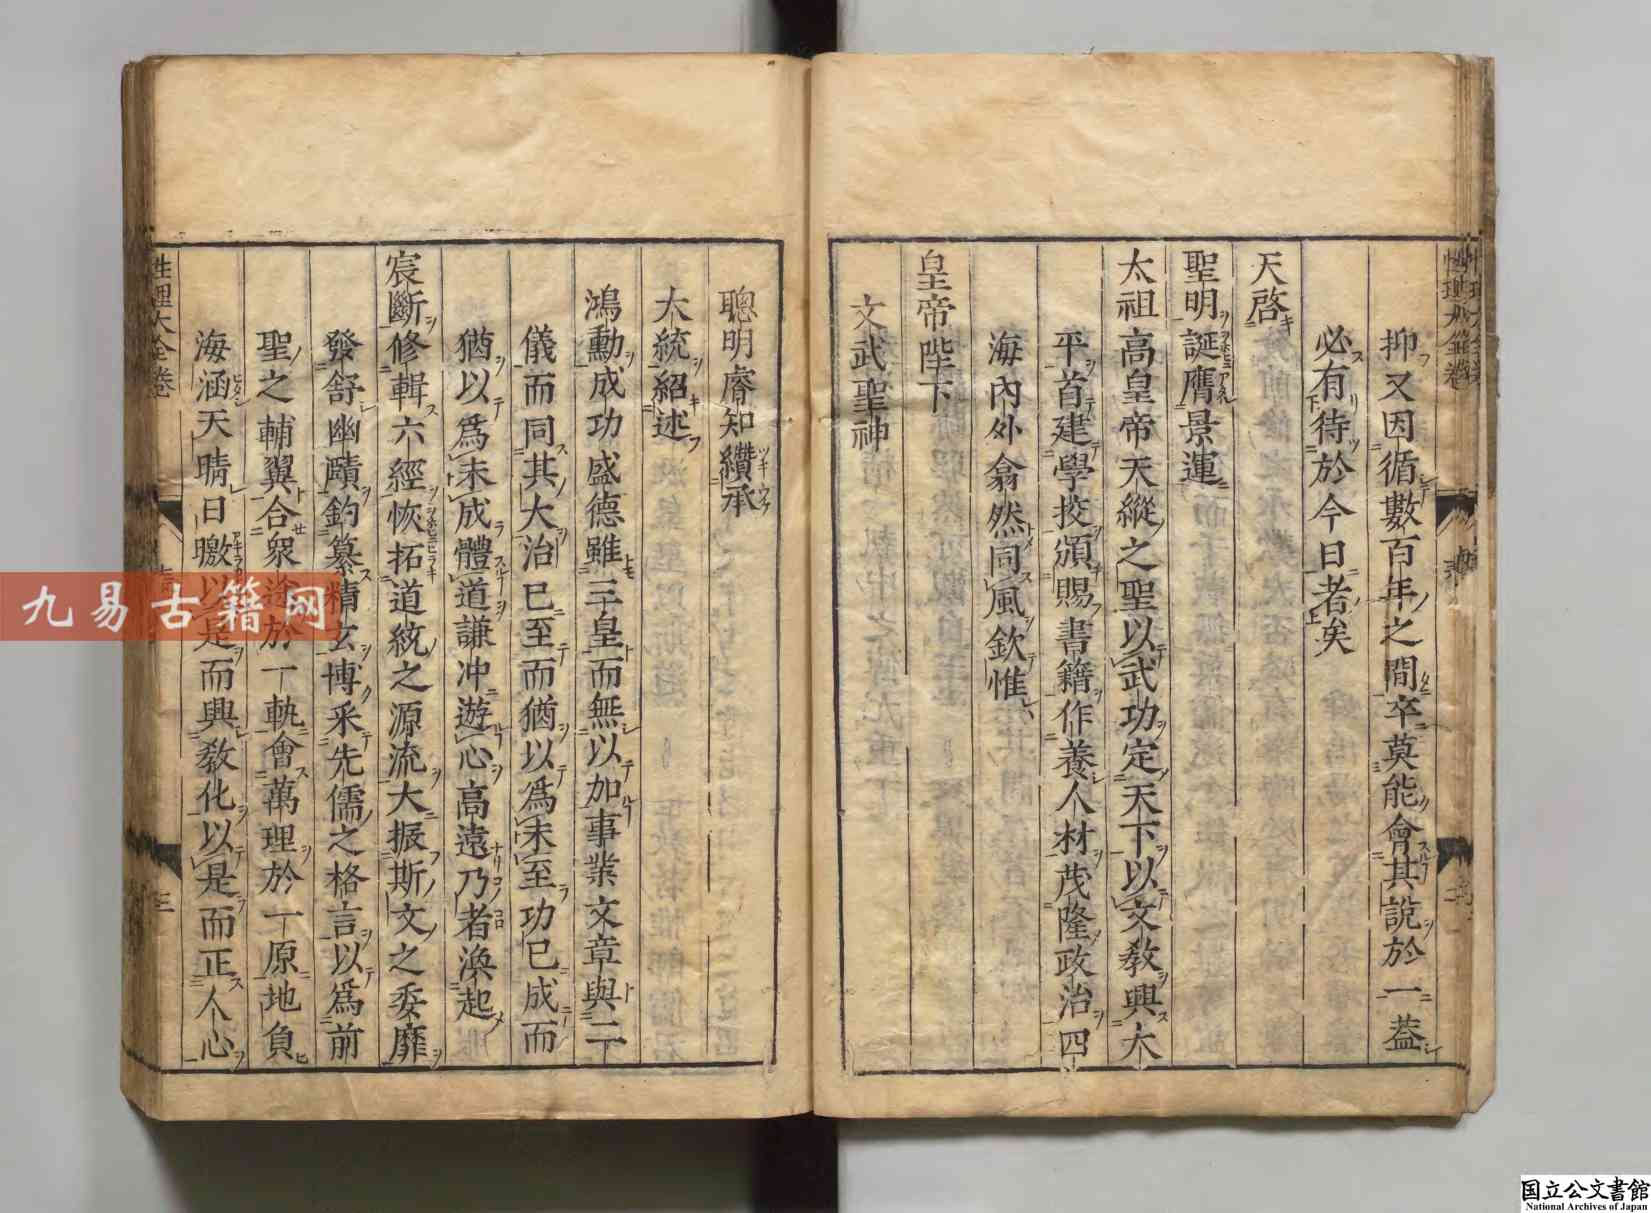 抑又因循數百年之間卒莫能會其說於一葢
必有待於今日者矣
天啓
聖明誕膺景運
太祖高皇帝天縱之聖以武功定天下以文敎興太
平首建學挍頒賜書籍作養人材茂隆政治四
海內外翕然同風欽惟
皇帝陛下
文武聖神
聰明睿知纘承
大統紹述
鴻勳成功盛德雖三皇而無以加事業文章與二
儀而同其大治已至而猶以爲未至功已成而
猶以爲未成體道謙冲遊心高遠乃者渙起
宸斷修輯六經恢拓道統之源流大振斯文之委靡
發舒幽賾鈞纂精玄博采先儒之格言以爲前
聖之輔翼合衆途於一軌會萬理於一原地負
海涵天晴日皦以是而興敎化以是而正人心
性理大全卷
三
九易古籍网
国立公文書館
National Archives of Japan